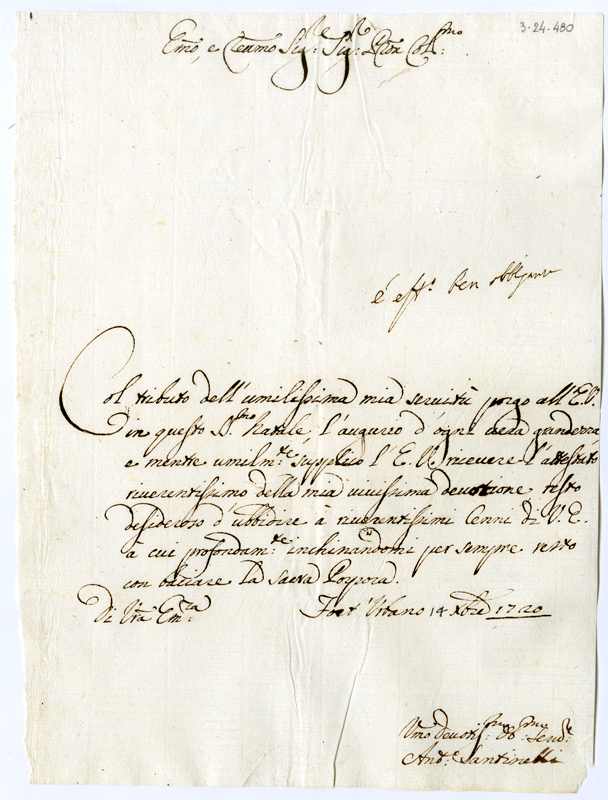 3-24-480
Emo, e Reumo Sig:re Sig:re Pron Col:mo
è aff:o
Col tributo dell'umilissima mia servitù porgo all'E.V.
in questo S:mo Natale, l'augurio d'ogni vera grandezza
e mentre umilm:te supplico l'E.V. ricevere l'attestato
riverentissimo della mia vivissima devotione, resto
desideroso d'ubbidire à riverentissimi Cenni di V.E.
à cui profondam:te inchinandomi per sempre resto
con baciare la sacra Porpora.
Di Vra Em:za Fort'Urbano 14 Xbre 1720
Vmo devotis:mo Ob:mo Serv:re
And:a Santinelli